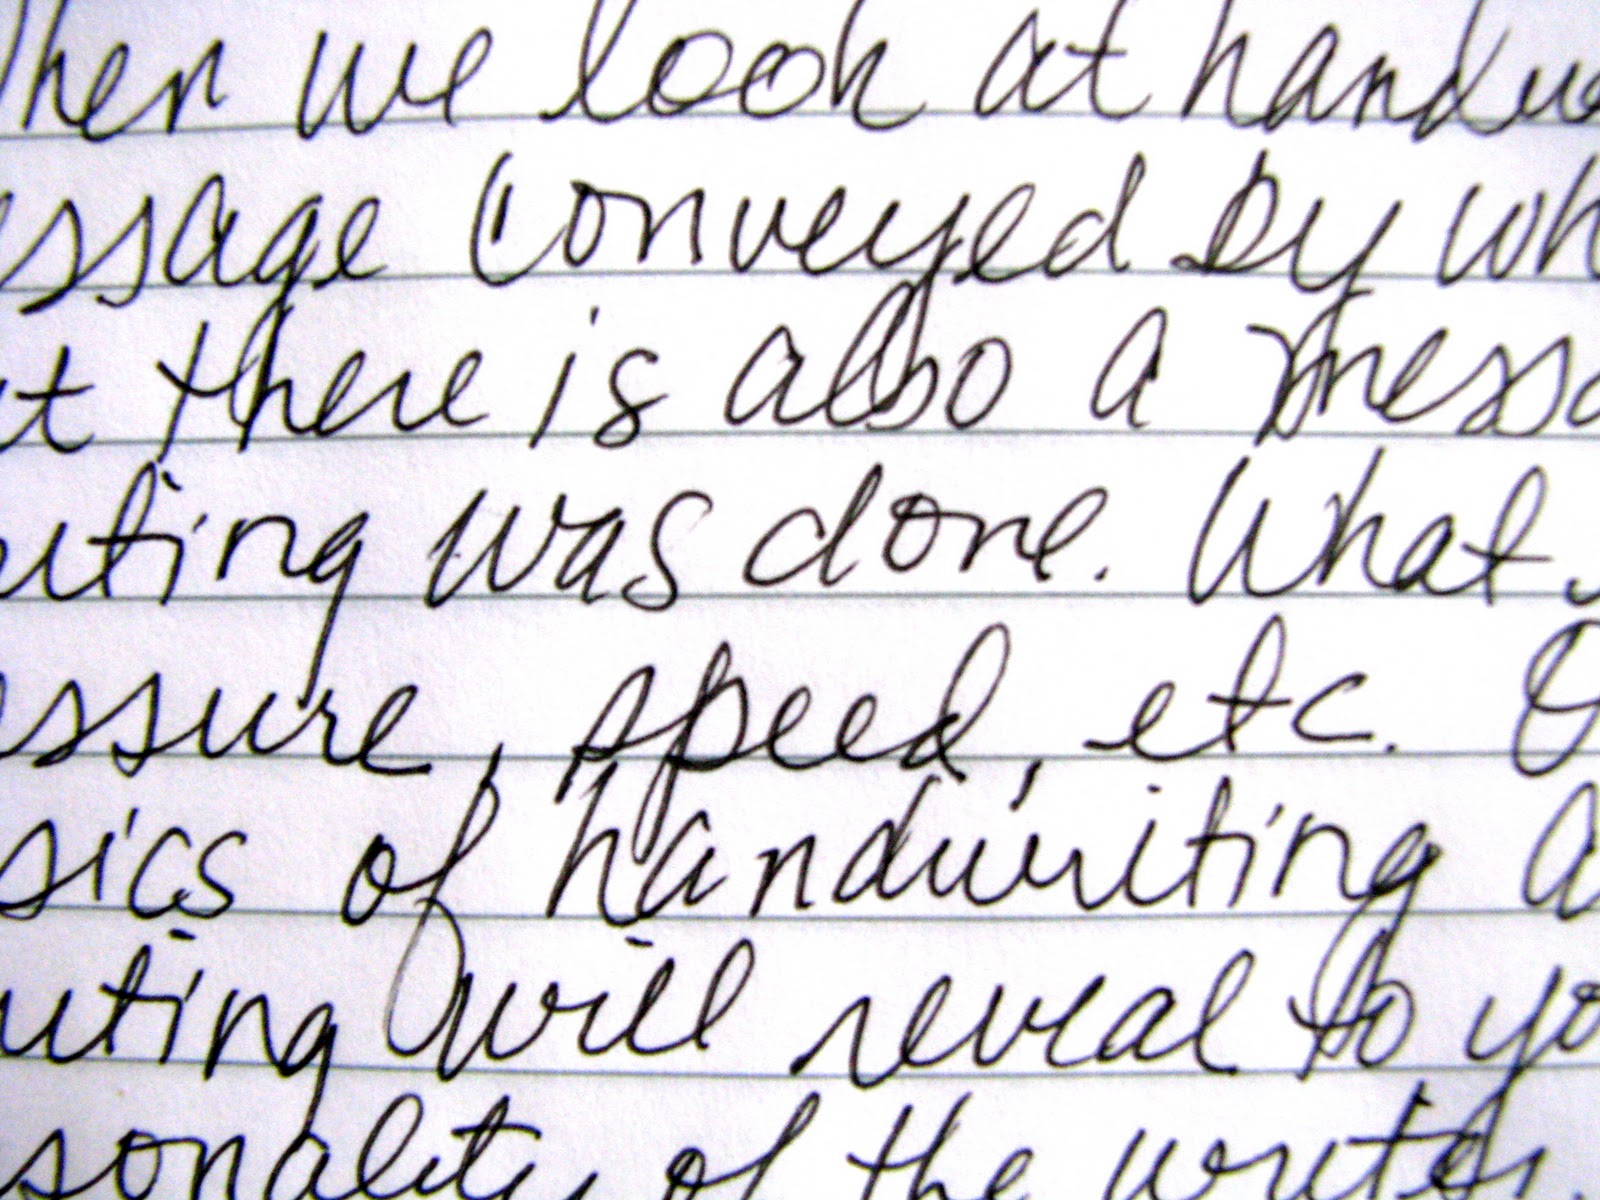 When we look at handw
essage conveyed by wh
ut there is also a messa
riting was done. What
essure, speed, etc. O
sics of handwriting a
riting will reveal to yo
sonality of the writer.